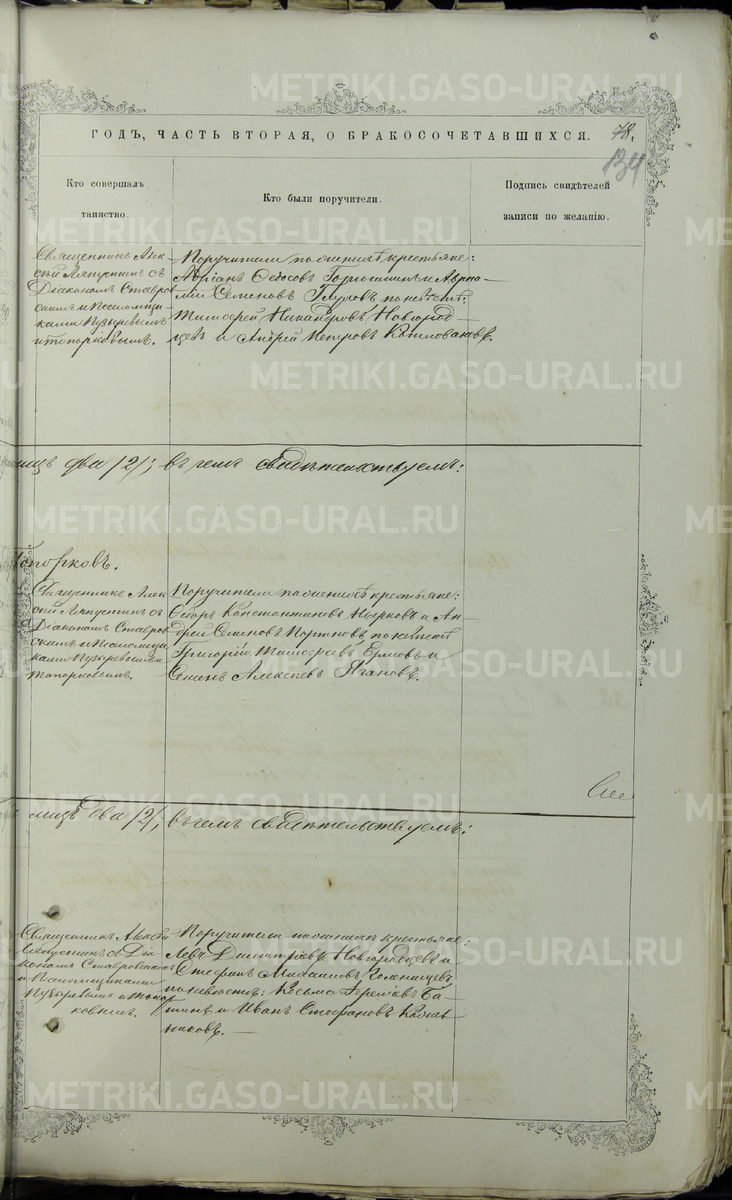 ГОДЪ, ЧАСТЬ ВТОРАЯ, О БРАКОСОЧЕТАВШИХСЯ.
78.
134
Кто совершалъ
таинство.
Кто были поручители.
Подпись свидѣтелей
записи по желанію.
Священникъ Алек
сѣй Ляпустинъ съ
Діакономъ Ставров
скимъ и Псаломщи-
ками Пузыревымъ
и Топорковымъ.
Поручители по женихѣ крестьяне:
Ѳедосовъ и Аврам-
Семеновъ по невѣстѣ:
Тимоѳей Никандровъ Новгород-
цевъ и Андрей Петровъ
лицъ два /2/; въ чемъ свидѣтельствуемъ:
Топорковъ.
Священникъ Алек
сѣй Ляпустинъ съ
Діакономъ Ставров
скимъ и Псаломщи
ками Пузыревымъ и
Топорковымъ.
Поручители по женихѣ крестьяне:
Ѳедоръ Константиновъ и Ан-
дрей Семеновъ по невѣстѣ
Григорій Тимоѳеевъ и
Семенъ Алексѣевъ Ягановъ.
лицъ два /2/; въ чемъ свидѣтельствуемъ:
Священникъ Алексѣй
Ляпустинъ съ Ді
акономъ Ставровскимъ
и Псаломщиками
Пузыревымъ и Топор
ковымъ.
Поручители по женихѣ крестьяне:
Левъ Димитріевъ Новгородцевъ и
Стефанъ Михаиловъ Голенищевъ
по невѣстѣ: Косьма и Иванъ Стефановъ
METRIKI.GASO-URAL.RU